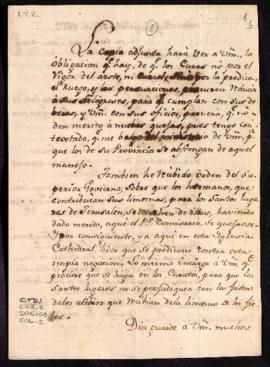 1.1.2.
La copia adjunta hará ver a Vm. la
Obligacion que hay, de que los Curas no por el
Rigor del arosto, ni por la predica,
el Ruego, y las persuaciones, procuren reducir
a sus feligreses, para que cumplan con sus de
beres, y Vm. con sus oficios, provea, q. no
den merito a nuevas quejas, pues tengo con
textado, q. me de Vm. q.
que los de su Provincia se abstengan de aquel
manejo.
Tambien he recibido orden del Su
perior Govierno, sobre que los hermanos, que
contribuian sus limosnas, para los Santos lu
gares de Jerusalen, se de ellas, haviendo
dado merito, aquel P. Comisario, se quejasse.
Por consiguiente, ya aqui en esta Iglesia
Cathedral, dise que se predicara contra esta
impia negacion. Lo mismo encargo a Vm. q.
procure que se haga en los Curatos, para que los
Santos lugares no se perjudiquen con la falta
de los alivios que recibian de la limosna de los fie
les.
Dios guarde a Vm. muchos